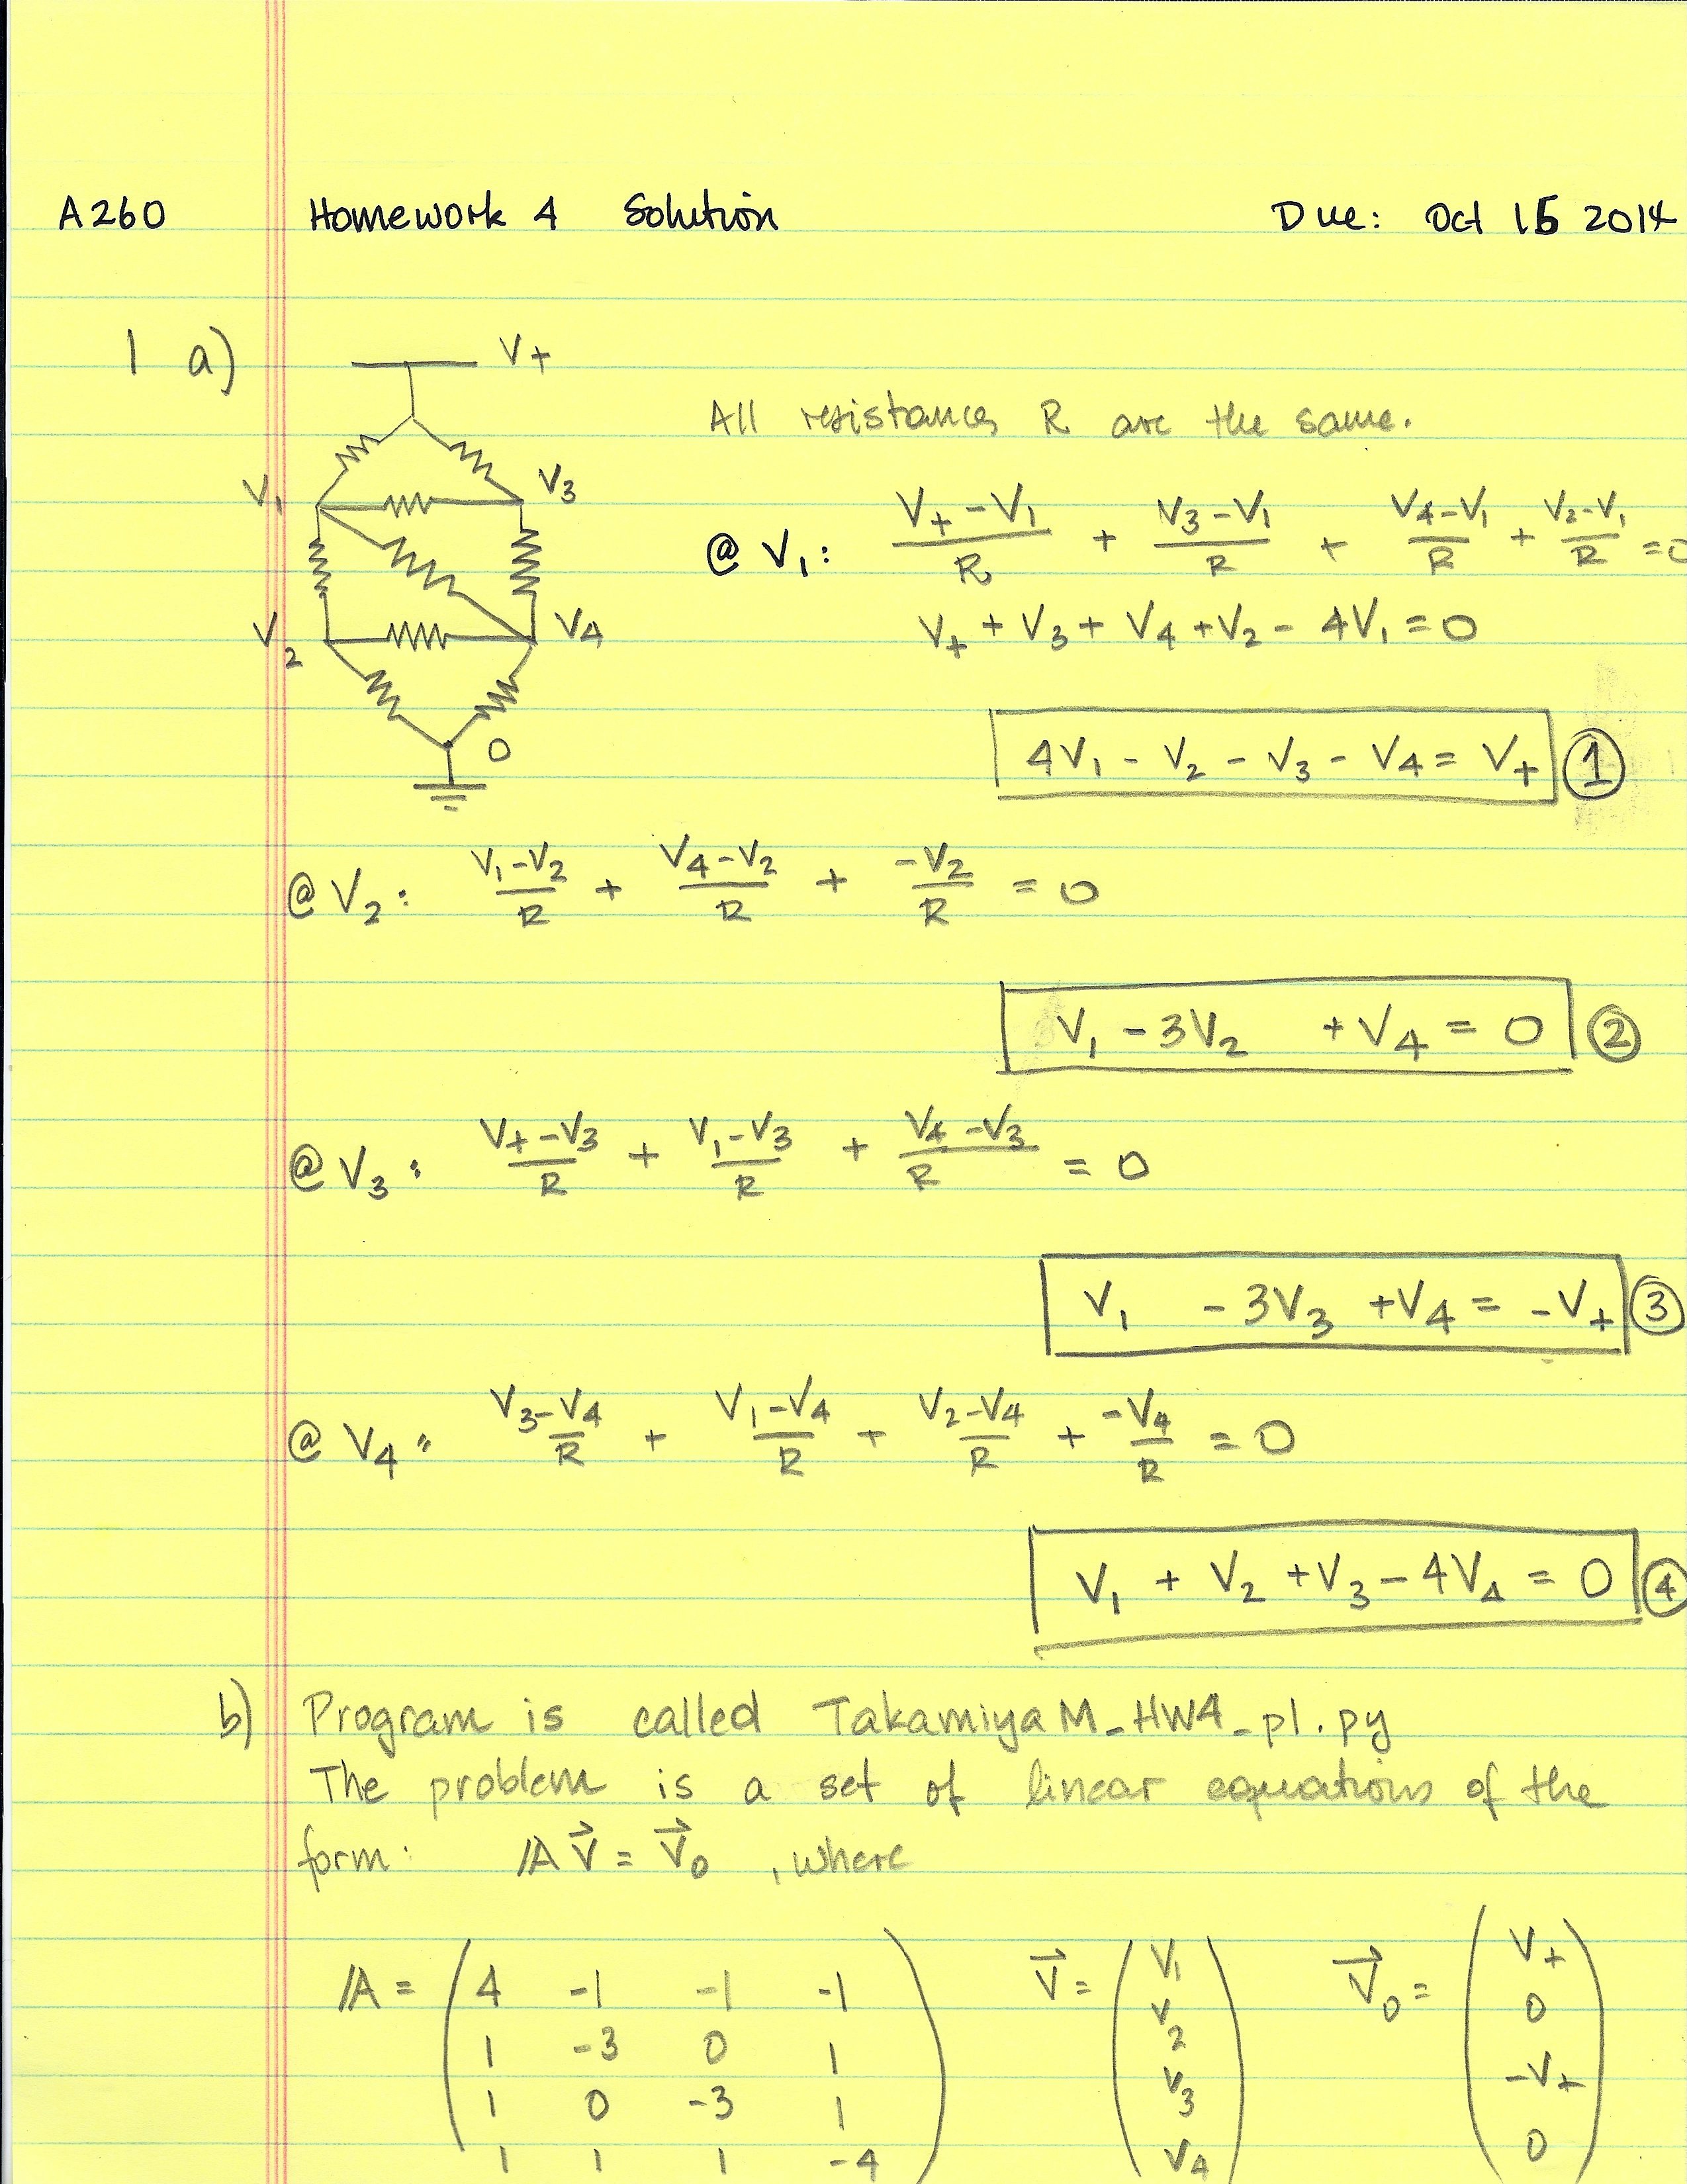 A260 Homework 4 Solution Due: Oct 15 2014
1 a)
V+
V1
V3
V2
V4
0
All resistances R are the same.
@ V1: (V+ - V1)/R + (V3 - V1)/R + (V4 - V1)/R + (V2 - V1)/R = 0
V+ + V3 + V4 + V2 - 4V1 = 0
4V1 - V2 - V3 - V4 = V+ ①
@ V2: (V1 - V2)/R + (V4 - V2)/R + (-V2)/R = 0
V1 - 3V2 + V4 = 0 ②
@ V3: (V+ - V3)/R + (V1 - V3)/R + (V4 - V3)/R = 0
V1 - 3V3 + V4 = -V+ ③
@ V4: (V3 - V4)/R + (V1 - V4)/R + (V2 - V4)/R + (-V4)/R = 0
V1 + V2 + V3 - 4V4 = 0 ④
b) Program is called TakamiyaM_HW4_p1.py
The problem is a set of linear equations of the
form: 𝔸 V⃗ = V⃗0 , where
𝔸 = ( 4 -1 -1 -1 V⃗ = ( V1 V⃗0 = ( V+
1 -3 0 1 V2 0
1 0 -3 1 V3 -V+
1 1 1 -4 ) V4 ) 0 )